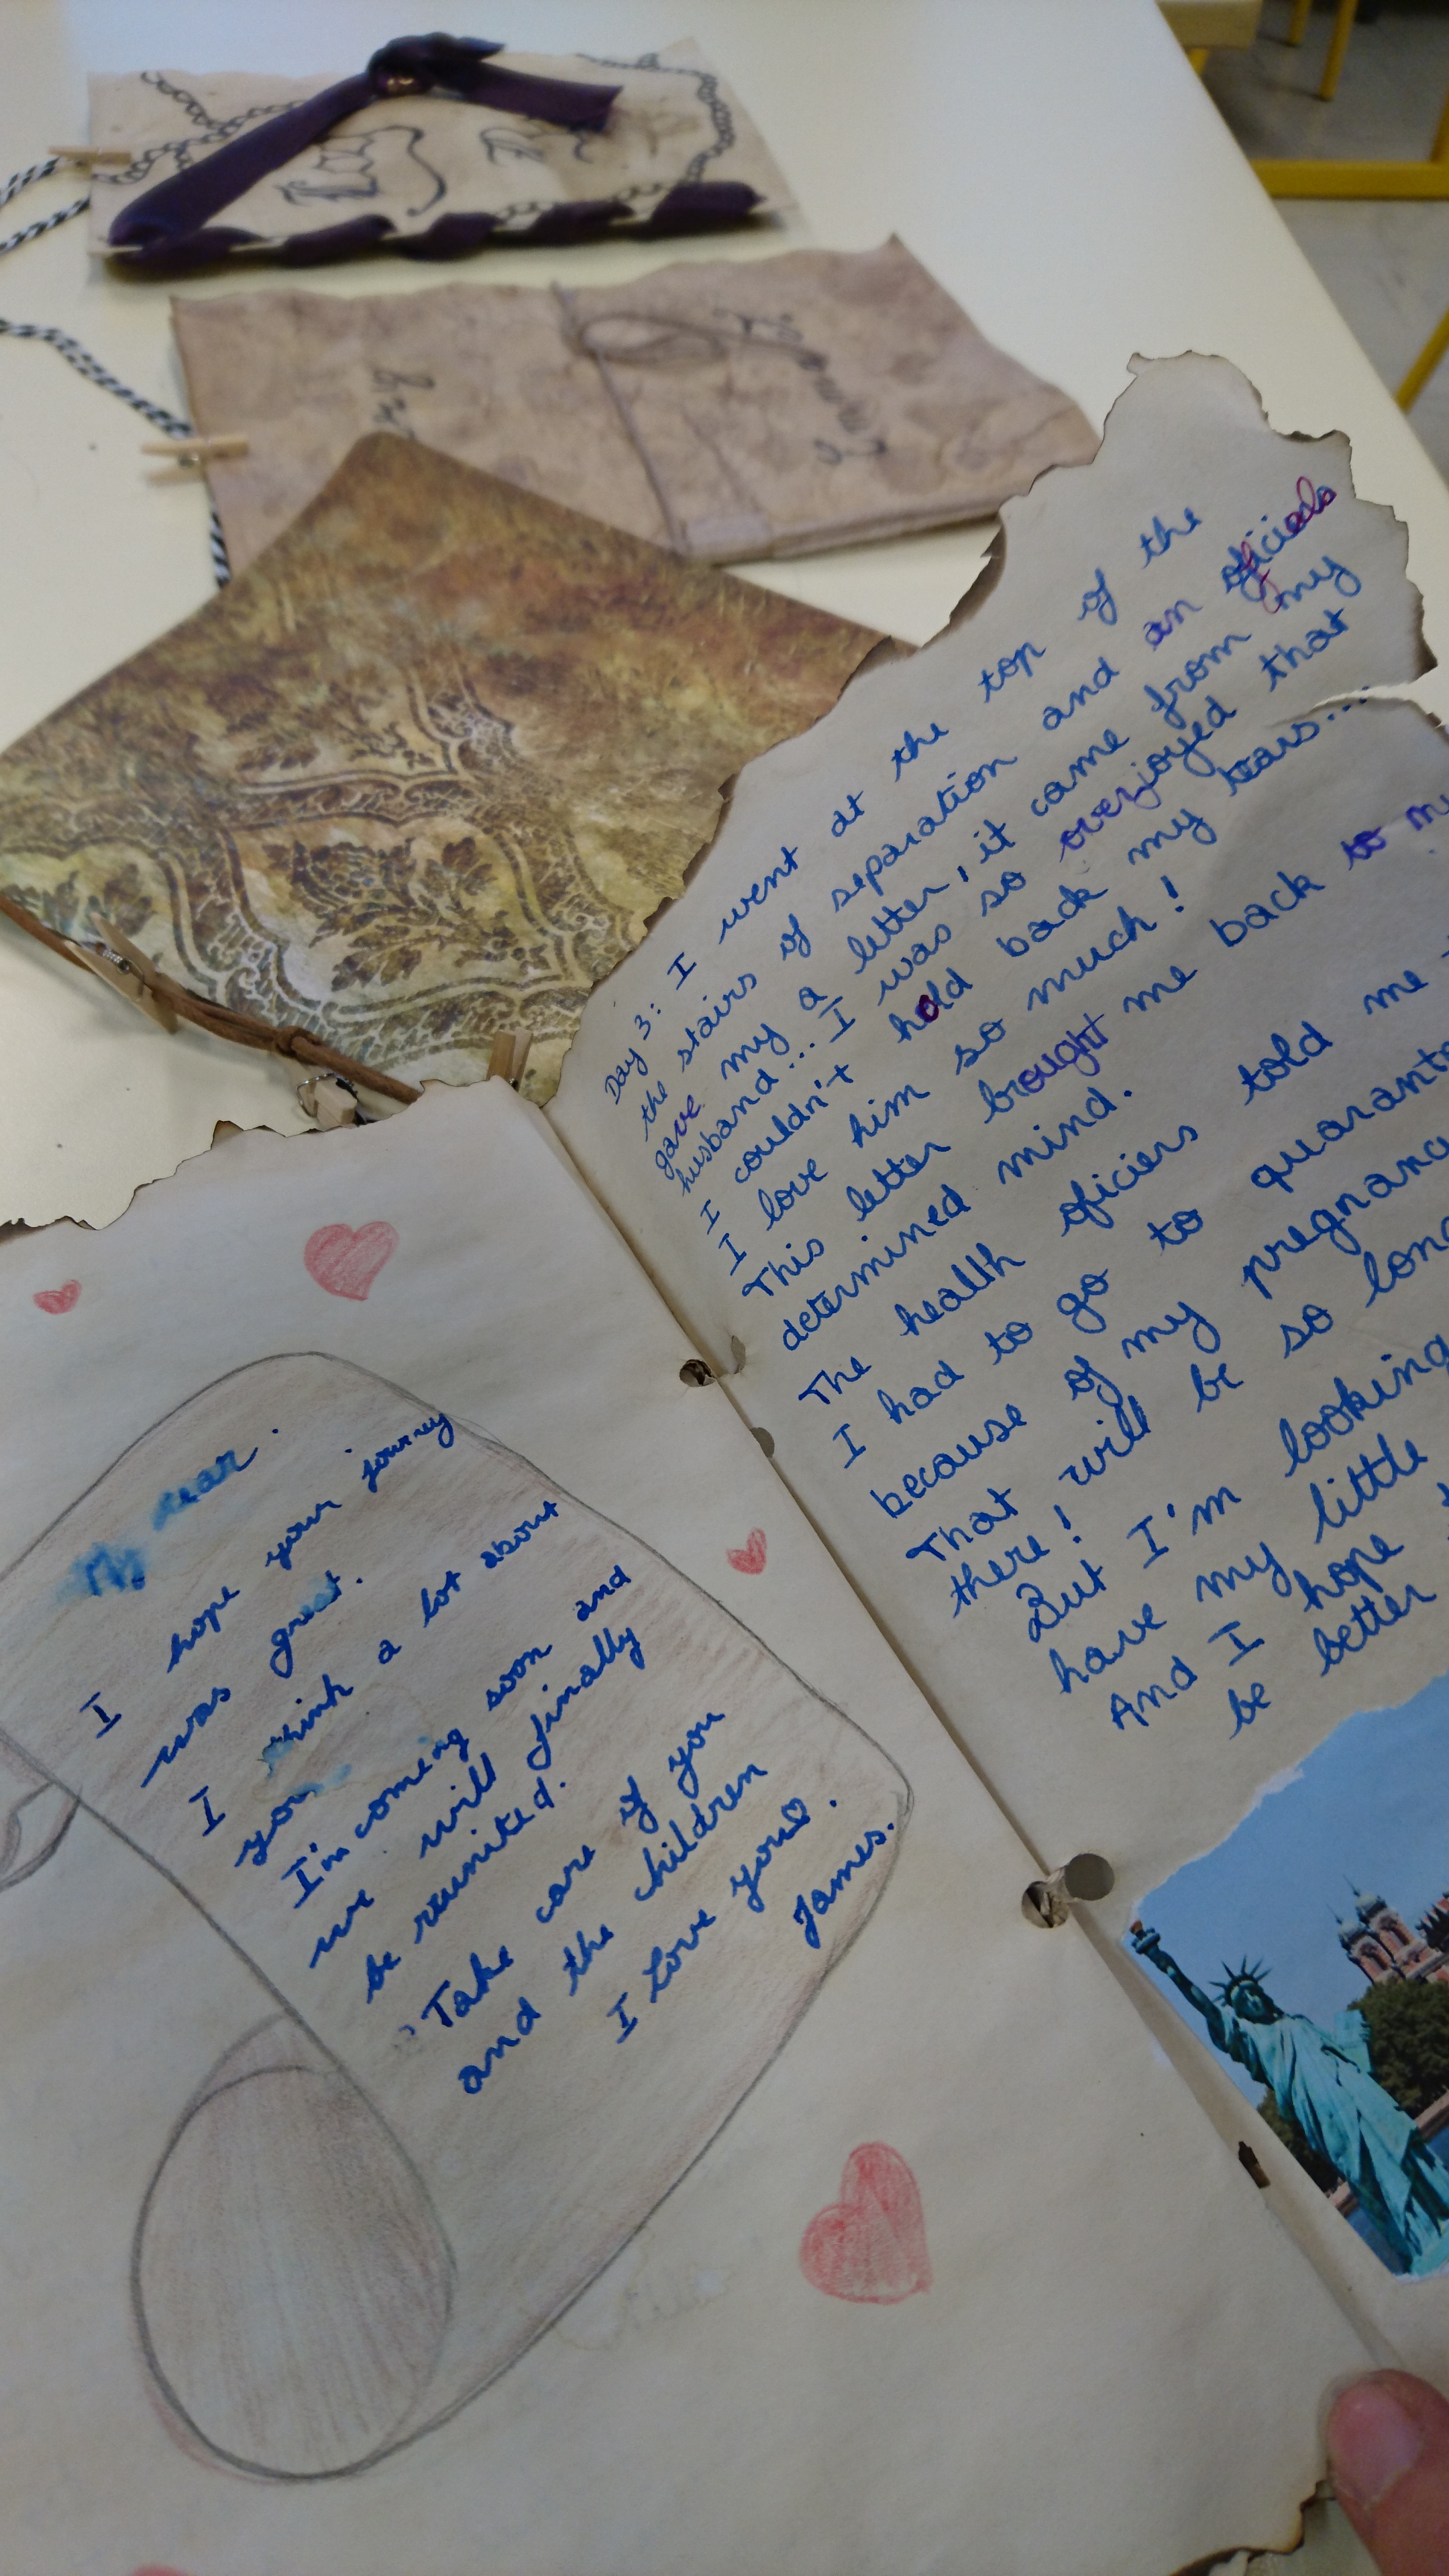 My dear.
I hope your journey
was great.
I think a lot about
you
I'm coming soon and
we will finally
be reunited.
Take care of you
and the children
I love you♡.
James.
Day 3: I went at the top of the
the stairs of separation and an oficials
gave my a letter, it came from my
husband... I was so overjoyed that
I couldn't hold back my tears....
I love him so much!
This letter brought me back to my
determined mind.
The health oficiers told me
I had to go to quarant
because of my pregnanc
That will be so long
there!
But I'm looking
have my little
And I hope
be better